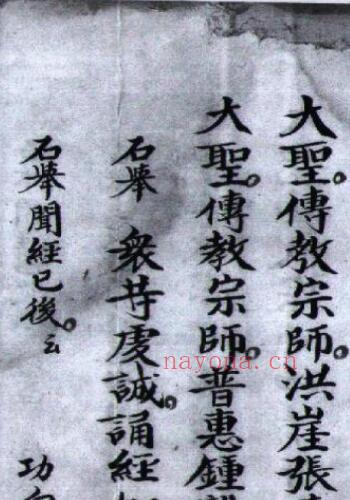 大聖。傳教宗師。洪崖張
大聖。傳教宗師。普惠鍾
石舉 衆等虔誠。誦經
石舉聞經已後。云
功
nayona.cn